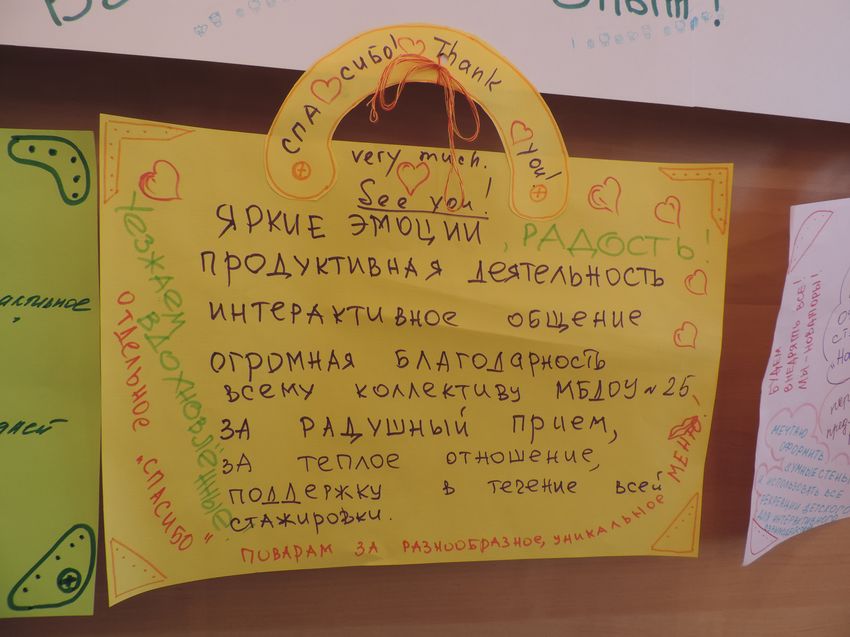 СПАСИБО! Thank you!
very much.
See you!
ЯРКИЕ ЭМОЦИИ, РАДОСТЬ!
ПРОДУКТИВНАЯ ДЕЯТЕЛЬНОСТЬ
ИНТЕРАКТИВНОЕ ОБЩЕНИЕ
ОГРОМНАЯ БЛАГОДАРНОСТЬ
ВСЕМУ КОЛЛЕКТИВУ МБДОУ №25
ЗА РАДУШНЫЙ ПРИЕМ,
ЗА ТЕПЛОЕ ОТНОШЕНИЕ,
ПОДДЕРЖКУ В ТЕЧЕНИЕ ВСЕЙ
СТАЖИРОВКИ.
УЕЗЖАЕМ ВДОХНОВЛЁННЫЕ
ОТДЕЛЬНОЕ "СПАСИБО"
ПОВАРАМ ЗА РАЗНООБРАЗНОЕ, УНИКАЛЬНОЕ МЕНЮ!
БУДЕМ
ВНЕДРЯТЬ ВСЕ!
МЫ - НОВАТОРЫ!
МЕЧТАЮ
ОФОРМИТЬ
УМНЫЕ СТЕНЫ
И ИСПОЛЬЗОВАТЬ ВСЕ